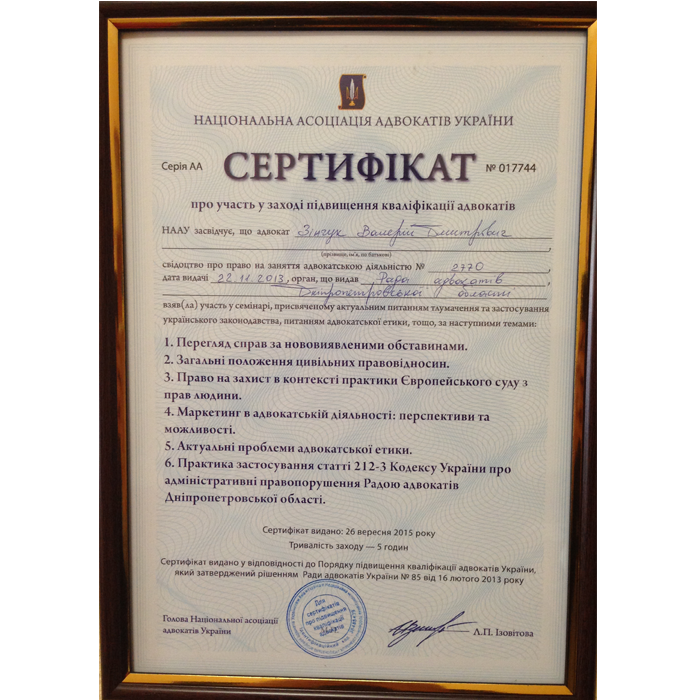 НАЦІОНАЛЬНА АСОЦІАЦІЯ АДВОКАТІВ УКРАЇНИ
Серія АА СЕРТИФІКАТ № 017744
про участь у заході підвищення кваліфікації адвокатів
НААУ засвідчує, що адвокат Зінчук Валерій Дмитрович
(прізвище, ім'я, по батькові)
свідоцтво про право на заняття адвокатською діяльністю № 2770
дата видачі 22.11.2013, орган, що видав Рада адвокатів
Дніпропетровської області
взяв(ла) участь у семінарі, присвяченому актуальним питанням тлумачення та застосування
українського законодавства, питанням адвокатської етики, тощо, за наступними темами:
1. Перегляд справ за нововиявленими обставинами.
2. Загальні положення цивільних правовідносин.
3. Право на захист в контексті практики Європейського суду з
прав людини.
4. Маркетинг в адвокатській діяльності: перспективи та
можливості.
5. Актуальні проблеми адвокатської етики.
6. Практика застосування статті 212-3 Кодексу України про
адміністративні правопорушення Радою адвокатів
Дніпропетровської області.
Сертифікат видано: 26 вересня 2015 року
Тривалість заходу — 5 годин
Сертифікат видано у відповідності до Порядку підвищення кваліфікації адвокатів України,
який затверджений рішенням Ради адвокатів України № 85 від 16 лютого 2013 року
Для
сертифікатів
про підвищення
кваліфікації
адвокатів
Голова Національної асоціації
адвокатів України
Л.П. Ізовітова